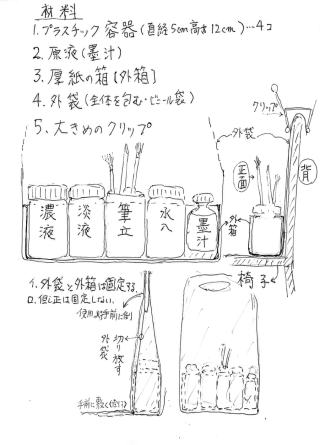 材料
1. プラスチック容器(直経5cm高さ12cm)…4コ
2. 原液(墨汁)
3. 厚紙の箱[外箱]
4. 外袋(全体を包む・ビニール袋)
5. 大きめのクリップ
クリップ
外袋
正面
背
濃液
淡液
筆立
水入
墨汁
外箱
椅子
イ. 外袋と外箱は固定する.
ロ. 但し正は固定しない.
切り放す
外袋